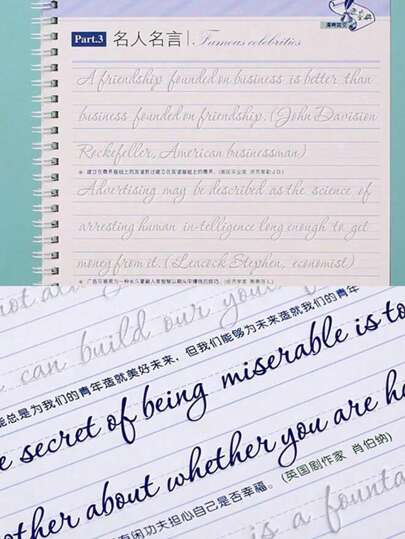 Part.3 名人名言 Famous celebrities
A friendship founded on business is better than
business founded on friendship. (John Davision
Rockefeller, American businessman)
Advertising may be described as the science of
arresting human in-telligence long enough to get
money from it. (Leacock Stephen, economist)
not
can build our you
能总是为我们的青年造就美好未来，但我们能够为未来造就我们的青年
e secret of being miserable is to
other about whether you are ha
有闲功夫担心自己是否幸福。(英国剧作家 肖伯纳)
is a founta